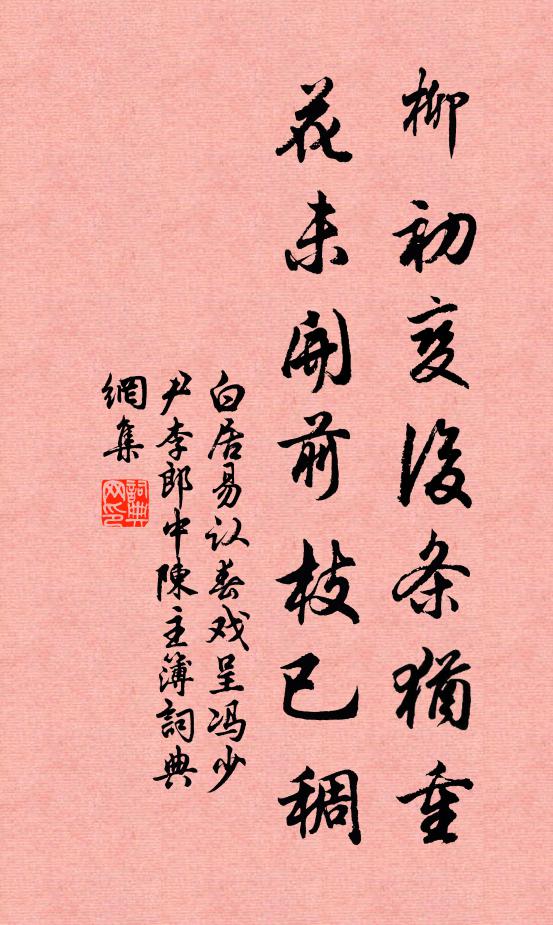 柳初变後条犹重
花未開前枝已稠
白居易认春戏呈冯少
尹李郎中陳主簿詞典
網集
詞典网印